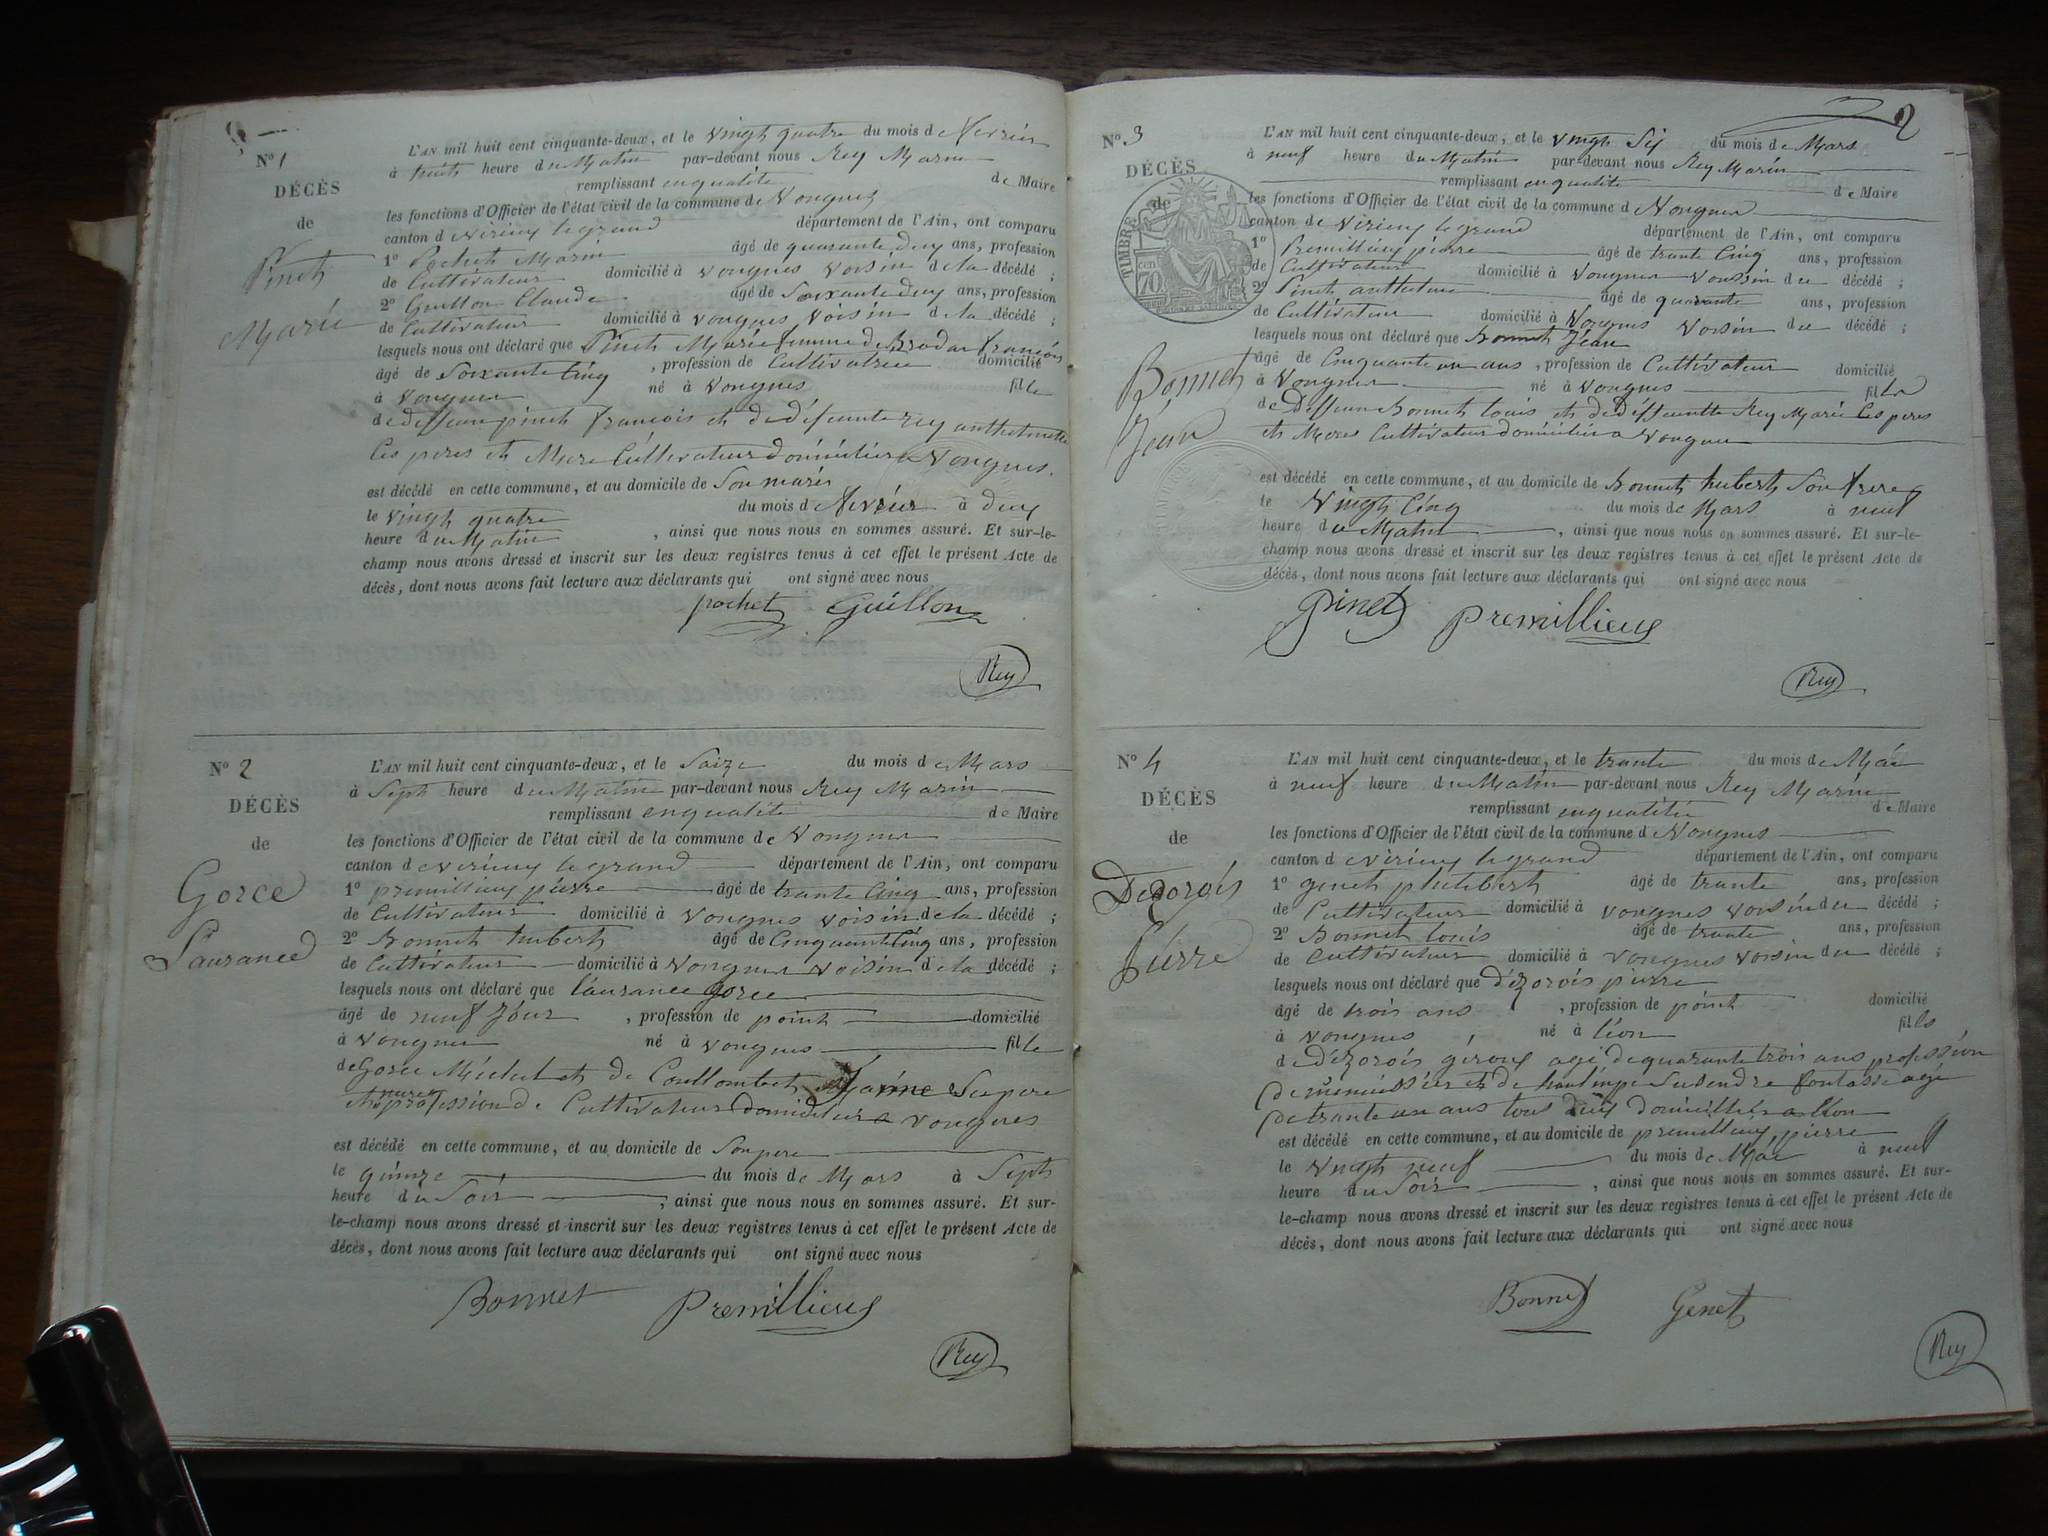 N° 1
DÉCÈS
de
Pinet
Marie
L'AN mil huit cent cinquante-deux, et le vingt quatre du mois de fevrier
à huit heure du Matin par-devant nous Rey Marin
remplissant en qualité de Maire
les fonctions d'Officier de l'état civil de la commune de Vongnes
canton d virieu le grand département de l'Ain, ont comparu
1° Pochet Marin âgé de quarante deux ans, profession
de Cultivateur domicilié à vongnes voisin de la décédé ;
2° Guillon Claude âgé de Soixante deux ans, profession
de Cultivateur domicilié à vongnes voisin de la décédé ;
lesquels nous ont déclaré que Pinet Marie femme de françois
âgé de Soixante Cinq , profession de Cultivatrice domicilié
à Vongnes né à Vongnes fille
de deffeunt pinet françois et de défeunte rey anthelmette
Ces peres et Mere Cultivateur domicilier a Vongnes.
est décédé en cette commune, et au domicile de Son maris
le vingt quatre du mois de fevrier à deux
heure du Matin , ainsi que nous nous en sommes assuré. Et sur-le-
champ nous avons dressé et inscrit sur les deux registres tenus à cet effet le présent Acte de
décès, dont nous avons fait lecture aux déclarants qui ont signé avec nous
pochet Guillon
Rey
N° 2
DÉCÈS
de
Gorce
Laurance
L'AN mil huit cent cinquante-deux, et le Saize du mois de Mars
à Sept heure du Matin par-devant nous Rey Marin
remplissant en qualité de Maire
les fonctions d'Officier de l'état civil de la commune de Vongnes
canton d virieu le grand département de l'Ain, ont comparu
1° premillieux pierre âgé de trante Cinq ans, profession
de Cultivateur domicilié à vongnes voisin de la décédé ;
2° Bonnet hubert âgé de Cinquante Cinq ans, profession
de Cultivateur domicilié à Vongnes voisin de la décédé ;
lesquels nous ont déclaré que laurance Gorce
âgé de neuf Jour , profession de point domicilié
à Vongnes né à vongnes fille
de Gorce Michel et de Coullombet Jarine Ses pere
et mere profession de Cultivateur domicilier a vongnes
est décédé en cette commune, et au domicile de Son pere
le quinze du mois de Mars à Sept
heure du Soir , ainsi que nous nous en sommes assuré. Et sur-
le-champ nous avons dressé et inscrit sur les deux registres tenus à cet effet le présent Acte de
décès, dont nous avons fait lecture aux déclarants qui ont signé avec nous
Bonnet Premillieux
Rey
2
N° 3
DÉCÈS
de
TIMBRE
cent 70
Bonnet
Jean
L'AN mil huit cent cinquante-deux, et le vingt Six du mois de Mars
à neuf heure du Matin par-devant nous Rey Marin
remplissant en qualité de Maire
les fonctions d'Officier de l'état civil de la commune d Vongnes
canton de Virieu le grand département de l'Ain, ont comparu
1° Premillieux pierre âgé de trante Cinq ans, profession
de Cultivateur domicilié à Vongnes voissin du décédé ;
2° Pinet anthelme âgé de quarante ans, profession
de Cultivateur domicilié à Vongnes voisin du décédé ;
lesquels nous ont déclaré que Bonnet Jean
âgé de Cinquante un ans , profession de Cultivateur domicilié
à Vongnes né à Vongnes fil
de Deffeun Bonnet louis et de deffeuntte Rey Marie Ces peres
et Meres Cultivateur domicilier a Vongnes
est décédé en cette commune, et au domicile de Bonnet hubert Son frere
le Vingt Cinq du mois de Mars à neuf
heure du Matin , ainsi que nous nous en sommes assuré. Et sur-le-
champ nous avons dressé et inscrit sur les deux registres tenus à cet effet le présent Acte de
décès, dont nous avons fait lecture aux déclarants qui ont signé avec nous
Pinet Premillieux
Rey
N° 4
DÉCÈS
de
Dezorois
Pierre
L'AN mil huit cent cinquante-deux, et le trante du mois de Mai
à neuf heure du Matin par-devant nous Rey Marin
remplissant en qualitée de Maire
les fonctions d'Officier de l'état civil de la commune d Vongnes
canton d virieu le grand département de l'Ain, ont comparu
1° genet philibert âgé de trante ans, profession
de Cultivateur domicilié à vongnes voisin du décédé ;
2° Bonnet louis âgé de trante ans, profession
de Cultivateur domicilié à vongnes voisin du décédé ;
lesquels nous ont déclaré que dézorois pierre
âgé de trois ans , profession de point domicilié
à vongnes , né à léon fils
de dézorois géroux agé de quarante trois ans profession
de menuissier et de fontasse agé
de trante un ans tous deux domicilliés a léon
est décédé en cette commune, et au domicile de premillieux pierre
le vingt neuf du mois de Mai à neuf
heure du Soir , ainsi que nous nous en sommes assuré. Et sur-
le-champ nous avons dressé et inscrit sur les deux registres tenus à cet effet le présent Acte de
décès, dont nous avons fait lecture aux déclarants qui ont signé avec nous
Bonnet Genet
Rey